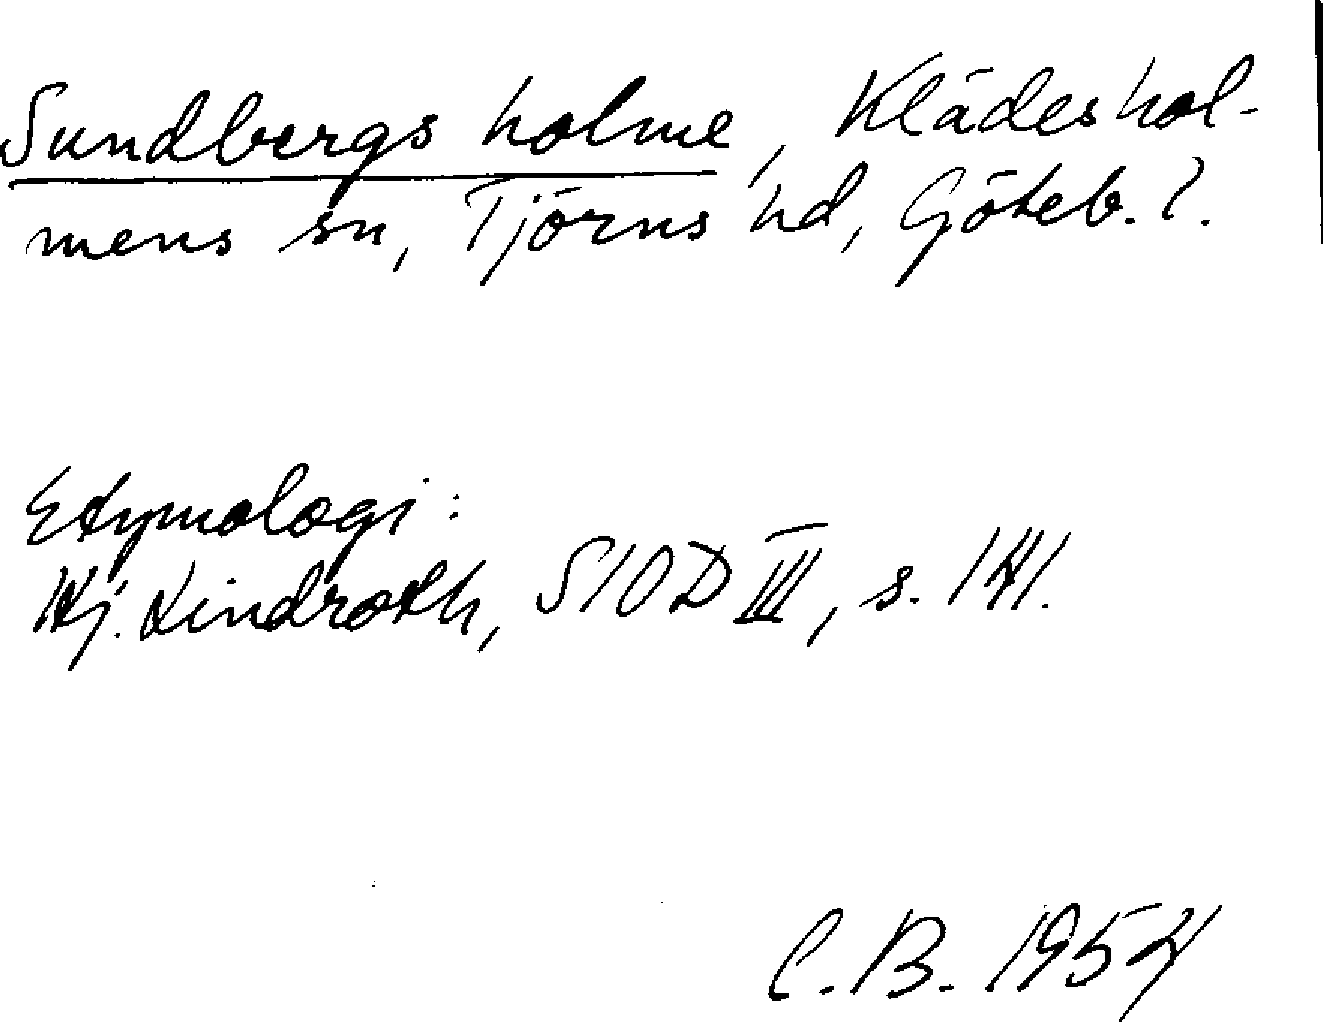 Sundbergs holme, Klädeshol-
mens sn, Tjörns hd, Göteb. l.
Etymologi:
Hj. Lindroth, SIOD III, s. 141.
C.B. 1954